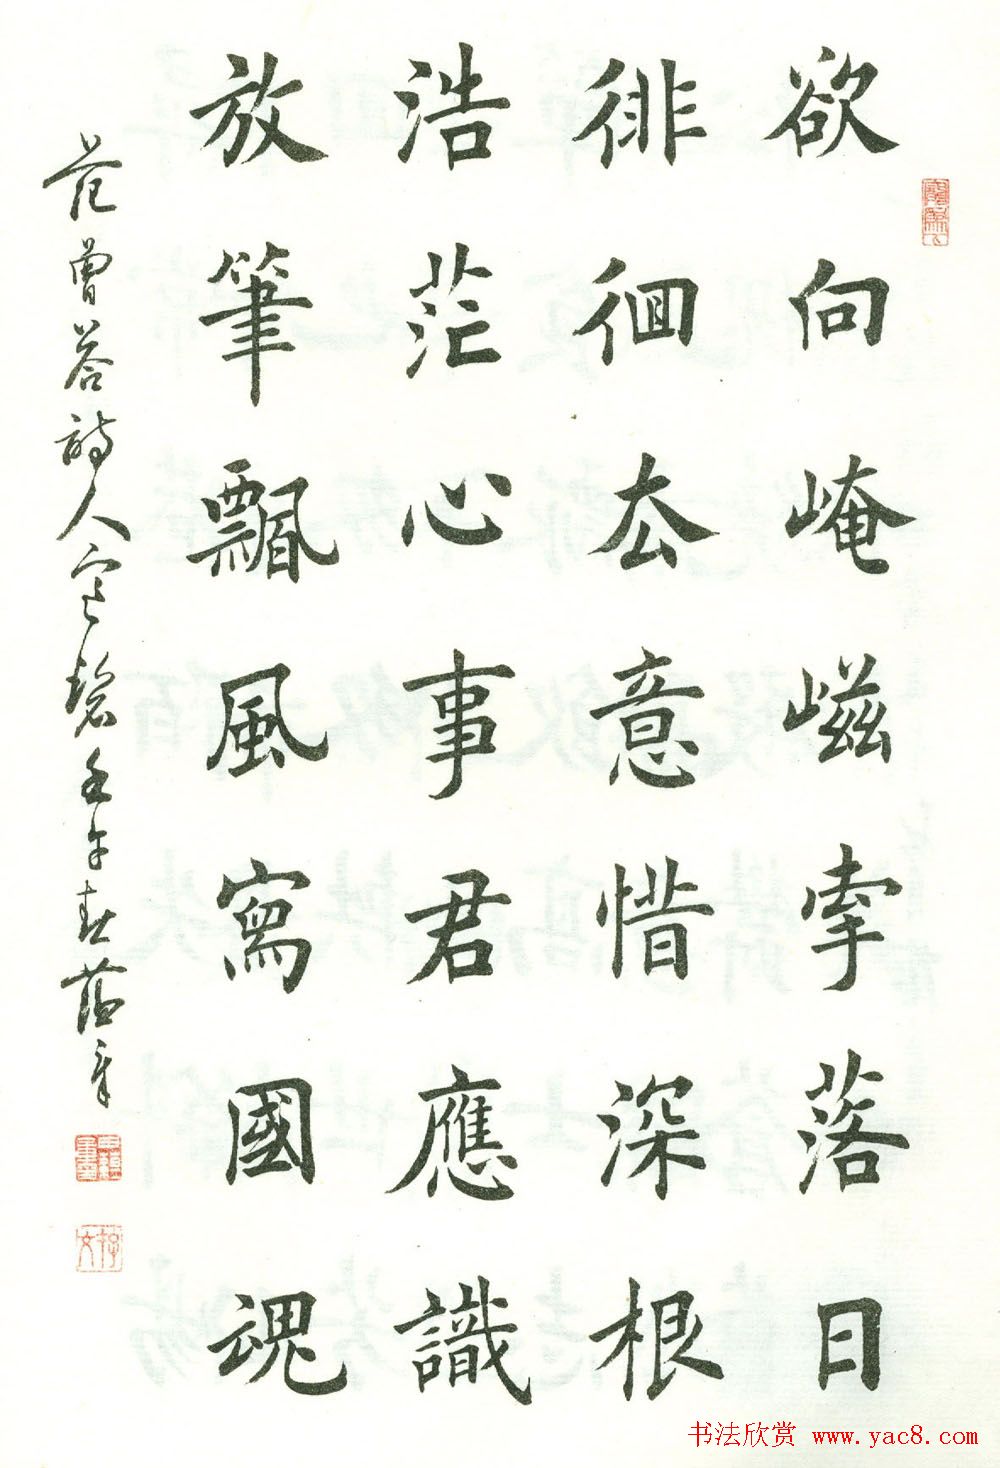 欲向崦嵫牽落日
徘徊厺意惜深根
浩茫心事君應識
放筆飄風寫國魂
范曾答詩人寒碧壬午春蘊章
书法欣赏 www.yac8.com